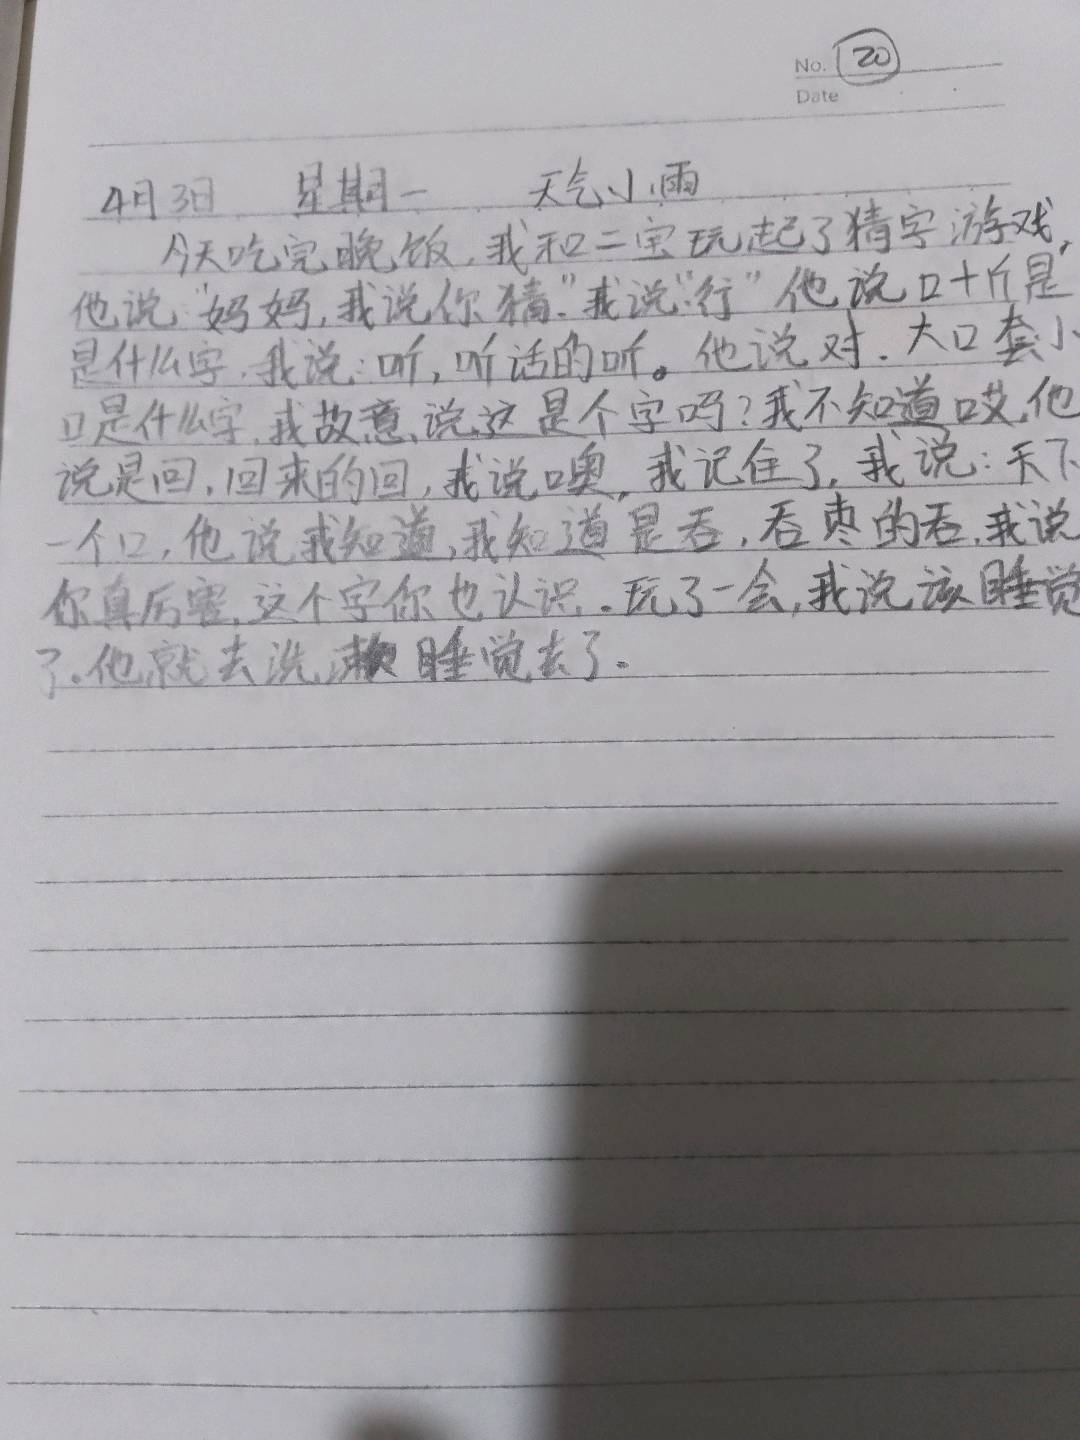 No. 20
Date
4月3日 星期一 天气小雨
今天吃完晚饭,我和二宝玩起了猜字游戏,
他说:"妈妈,我说你猜."我说:"行"他说口十斤是
是什么字,我说:听,听话的听。他说对.大口套小
口是什么字,我故意说这是个字吗?我不知道哎,他
说是回,回来的回,我说噢,我记住了,我说:天下
一个口,他说我知道,我知道是吞,吞枣的吞,我说
你真厉害,这个字你也认识.玩了一会,我说该睡觉
了.他就去洗漱睡觉去了.